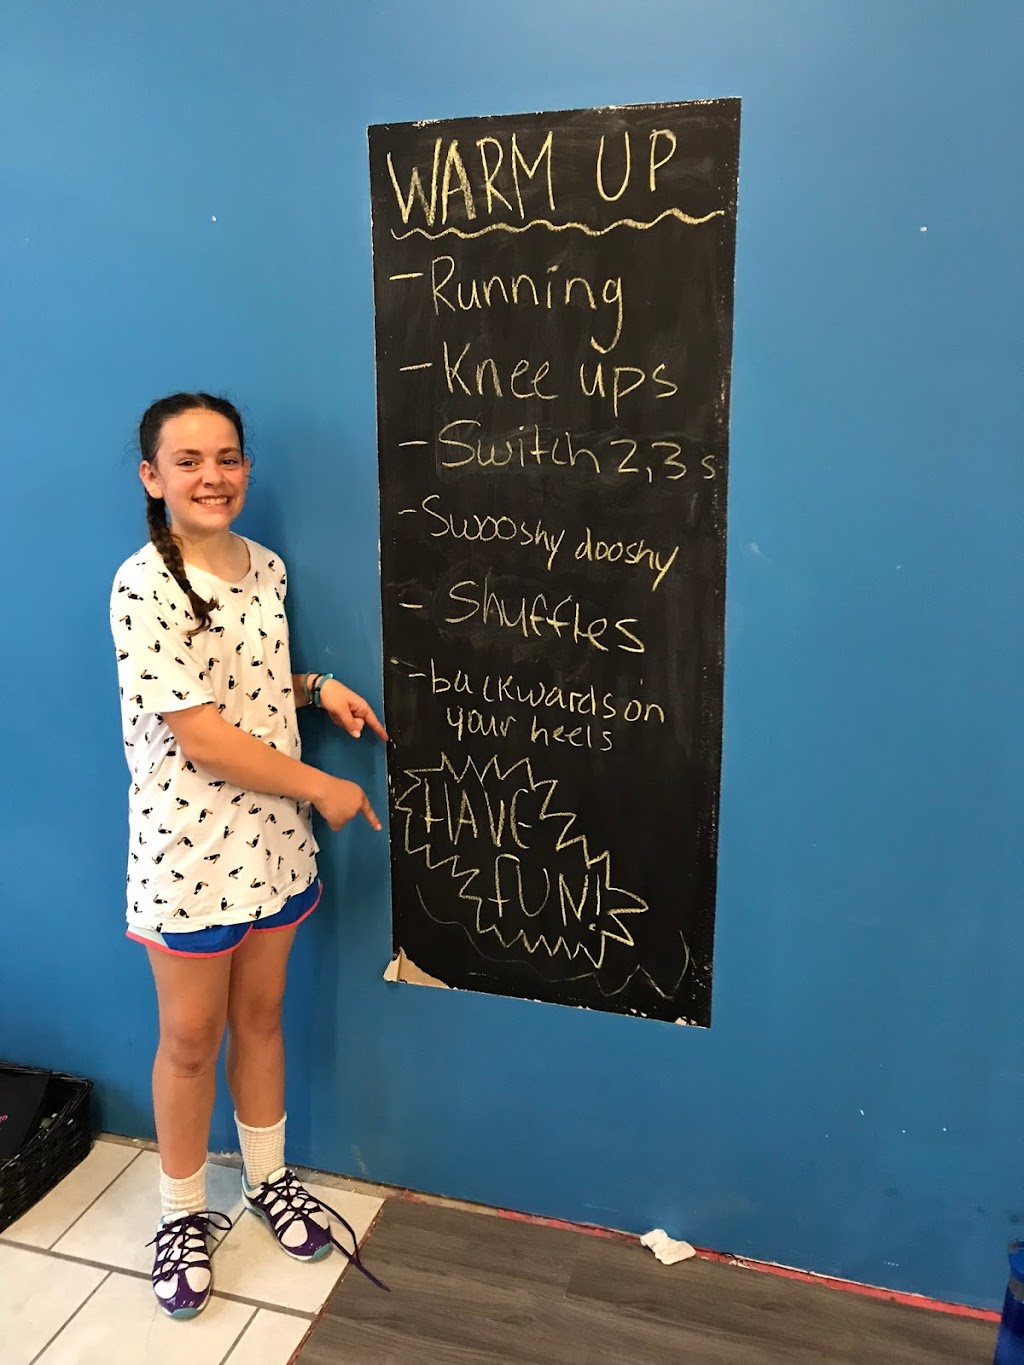 WARM UP
- Running
- Knee ups
- Switch 2,3s
- Swooshy dooshy
- Shuffles
- backwards on
your heels
HAVE
FUN!